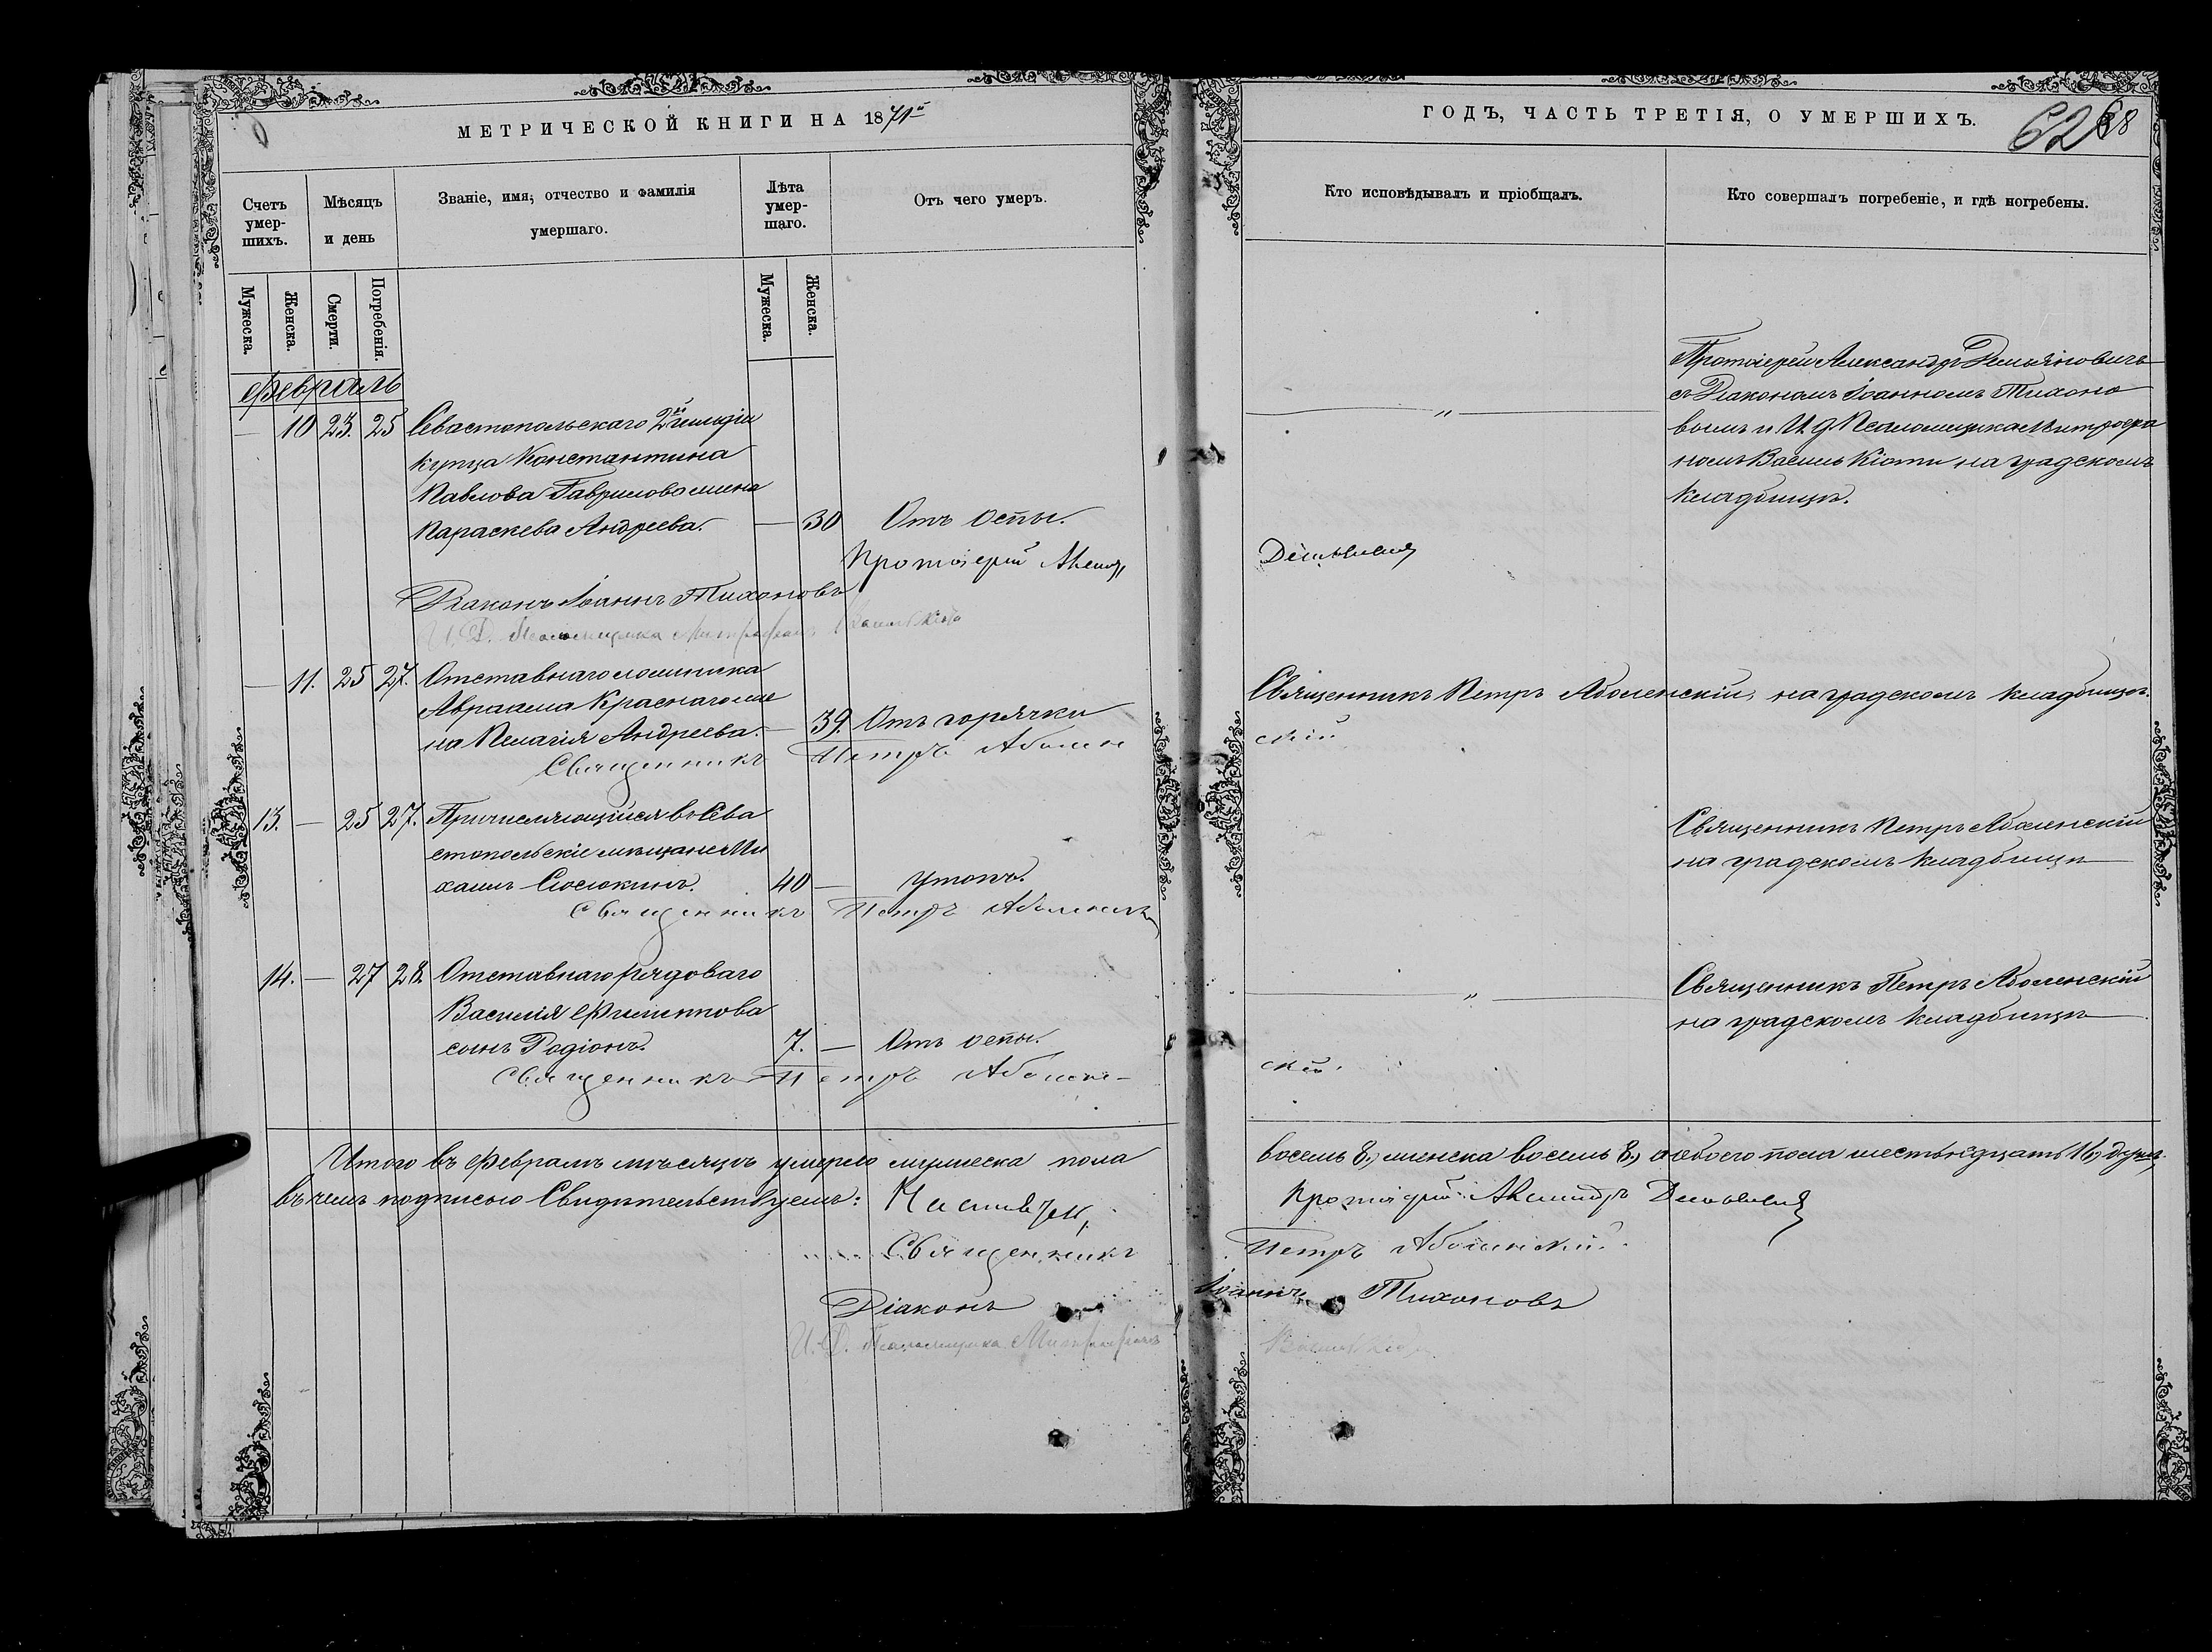 МЕТРИЧЕСКОЙ КНИГИ НА 1871й
ГОДЪ, ЧАСТЬ ТРЕТІЯ, О УМЕРШИХЪ.
62
Счетъ умер-
шихъ.
Мѣсяцъ
и день
Званіе, имя, отчество и фамилія
умершаго.
Лѣта
умер-
шаго.
Отъ чего умеръ.
Кто исповѣдывалъ и пріобщалъ.
Кто совершалъ погребеніе, и гдѣ погребены.
Мужеска.
Женска.
Смерти.
Погребенія.
Мужеска.
Женска.
Февраль
— 10 23. 25 Севастопольскаго 2й гильдіи
купца Константина
Павлова Гаврилова жена
Параскева Андреева. — 30 Отъ оспы.
— " —
Протоіерей Александръ Демьяновичъ
съ Діакономъ Іоанномъ Тихоно
вымъ и И. д. Псаломщика Митрофа
номъ на градскомъ
кладбищѣ.
Протоіерей
Діаконъ Іоаннъ Тихоновъ
И. Д. Псаломщика Митрофанъ
— 11. 25 27. Отставнаго
Авраама Краснаго же
на Пелагія Андреева. — 39. Отъ горячки
Священникъ Петръ Аболенскій, на градскомъ кладбищѣ.
Священникъ Петръ Аболен
скій
13. — 25 27. Причисляющійся въ Сева
стопольскіе мѣщане Ми
хаилъ 40 — Утопъ.
Священникъ Петръ Аболенскій
на градскомъ кладбищѣ
Священникъ Петръ Аболенскій
14. — 27 28. Отставнаго рядоваго
Василія Филиппова
сынъ Родіонъ. 7. — Отъ оспы.
— " —
Священникъ Петръ Аболенскій
на градскомъ кладбищѣ
Священникъ Петръ Аболен-
скій.
Итого въ Февралѣ мѣсяцѣ умерло мужеска пола
восемь 8, женска восемь 8, а обоего пола шестьнадцать 16, душъ.
въ чемъ подписью Свидѣтельствуемъ:
Протоіерей
Священникъ Петръ Аболенскій.
Діаконъ Іоаннъ Тихоновъ
И. Д. Псаломщика Митрофанъ